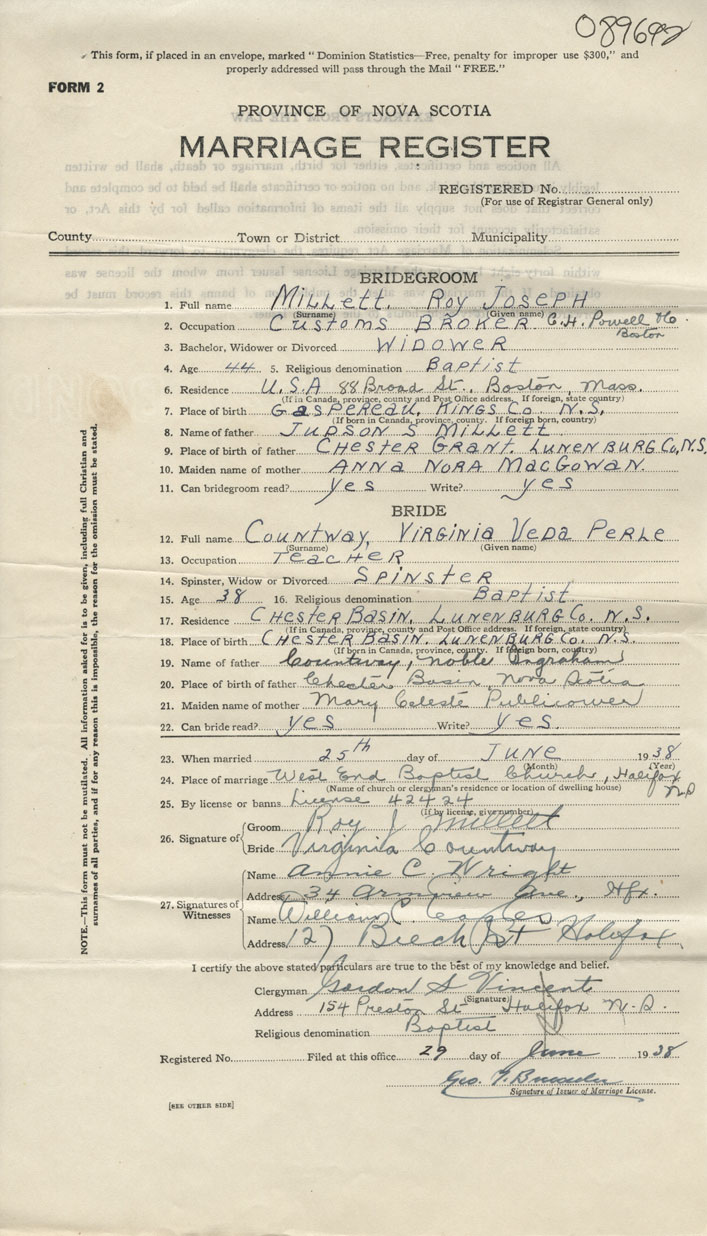 089692
This form, if placed in an envelope, marked "Dominion Statistics—Free, penalty for improper use $300," and
properly addressed will pass through the Mail "FREE."
FORM 2
PROVINCE OF NOVA SCOTIA
MARRIAGE REGISTER
REGISTERED No.
(For use of Registrar General only)
County Town or District Municipality
BRIDEGROOM
1. Full name Millett, Roy Joseph
(Surname) (Given name)
2. Occupation Customs Broker C.H. Powell Co.
Boston
3. Bachelor, Widower or Divorced Widower
4. Age 44 5. Religious denomination Baptist
6. Residence U.S.A 88 Broad St., Boston, Mass.
(If in Canada, province, county and Post Office address. If foreign, state country)
7. Place of birth Gaspereau, Kings Co. N.S.
(If born in Canada, province, county. If foreign born, country)
8. Name of father Judson S Millett
9. Place of birth of father Chester Grant. Lunenburg Co, N.S.
10. Maiden name of mother Anna Nora MacGowan.
11. Can bridegroom read? yes Write? yes
BRIDE
12. Full name Countway, Virginia Veda Perle
(Surname) (Given name)
13. Occupation Teacher
14. Spinster, Widow or Divorced Spinster
15. Age 38 16. Religious denomination Baptist
17. Residence Chester Basin, Lunenburg Co. N.S.
(If in Canada, province, county and Post Office address. If foreign, state country)
18. Place of birth Chester Basin. Lunenburg Co. N.S.
(If born in Canada, province, county. If foreign born, country)
19. Name of father Countway, noble Ingraham
20. Place of birth of father Chester Basin, Nova Scotia
21. Maiden name of mother Mary Celeste Publicover
22. Can bride read? yes Write? yes.
23. When married 25th day of June 1938
(Month) (Year)
24. Place of marriage West End Baptist Church, Halifax
N.S
(Name of church or clergyman's residence or location of dwelling house)
25. By license or banns License 42424
(If by license, give number)
26. Signature of Groom Roy J Millett
Bride Virginia Countway
27. Signatures of Witnesses Name Annie C. Wright
Address 34 Armview Ave., Hfx.
Name William C. Eagles
Address 127 Beech St Halifax
I certify the above stated particulars are true to the best of my knowledge and belief.
Clergyman Gordon S Vincent
(Signature)
Address 154 Preston St Halifax N.S.
Religious denomination Baptist
Registered No. Filed at this office 29 day of June 1938
Geo. T.
Signature of Issuer of Marriage License.
[SEE OTHER SIDE]
NOTE.—This form must not be mutilated. All information asked for is to be given, including full Christian and
surnames of all parties, and if for any reason this is impossible, the reason for the omission must be stated.